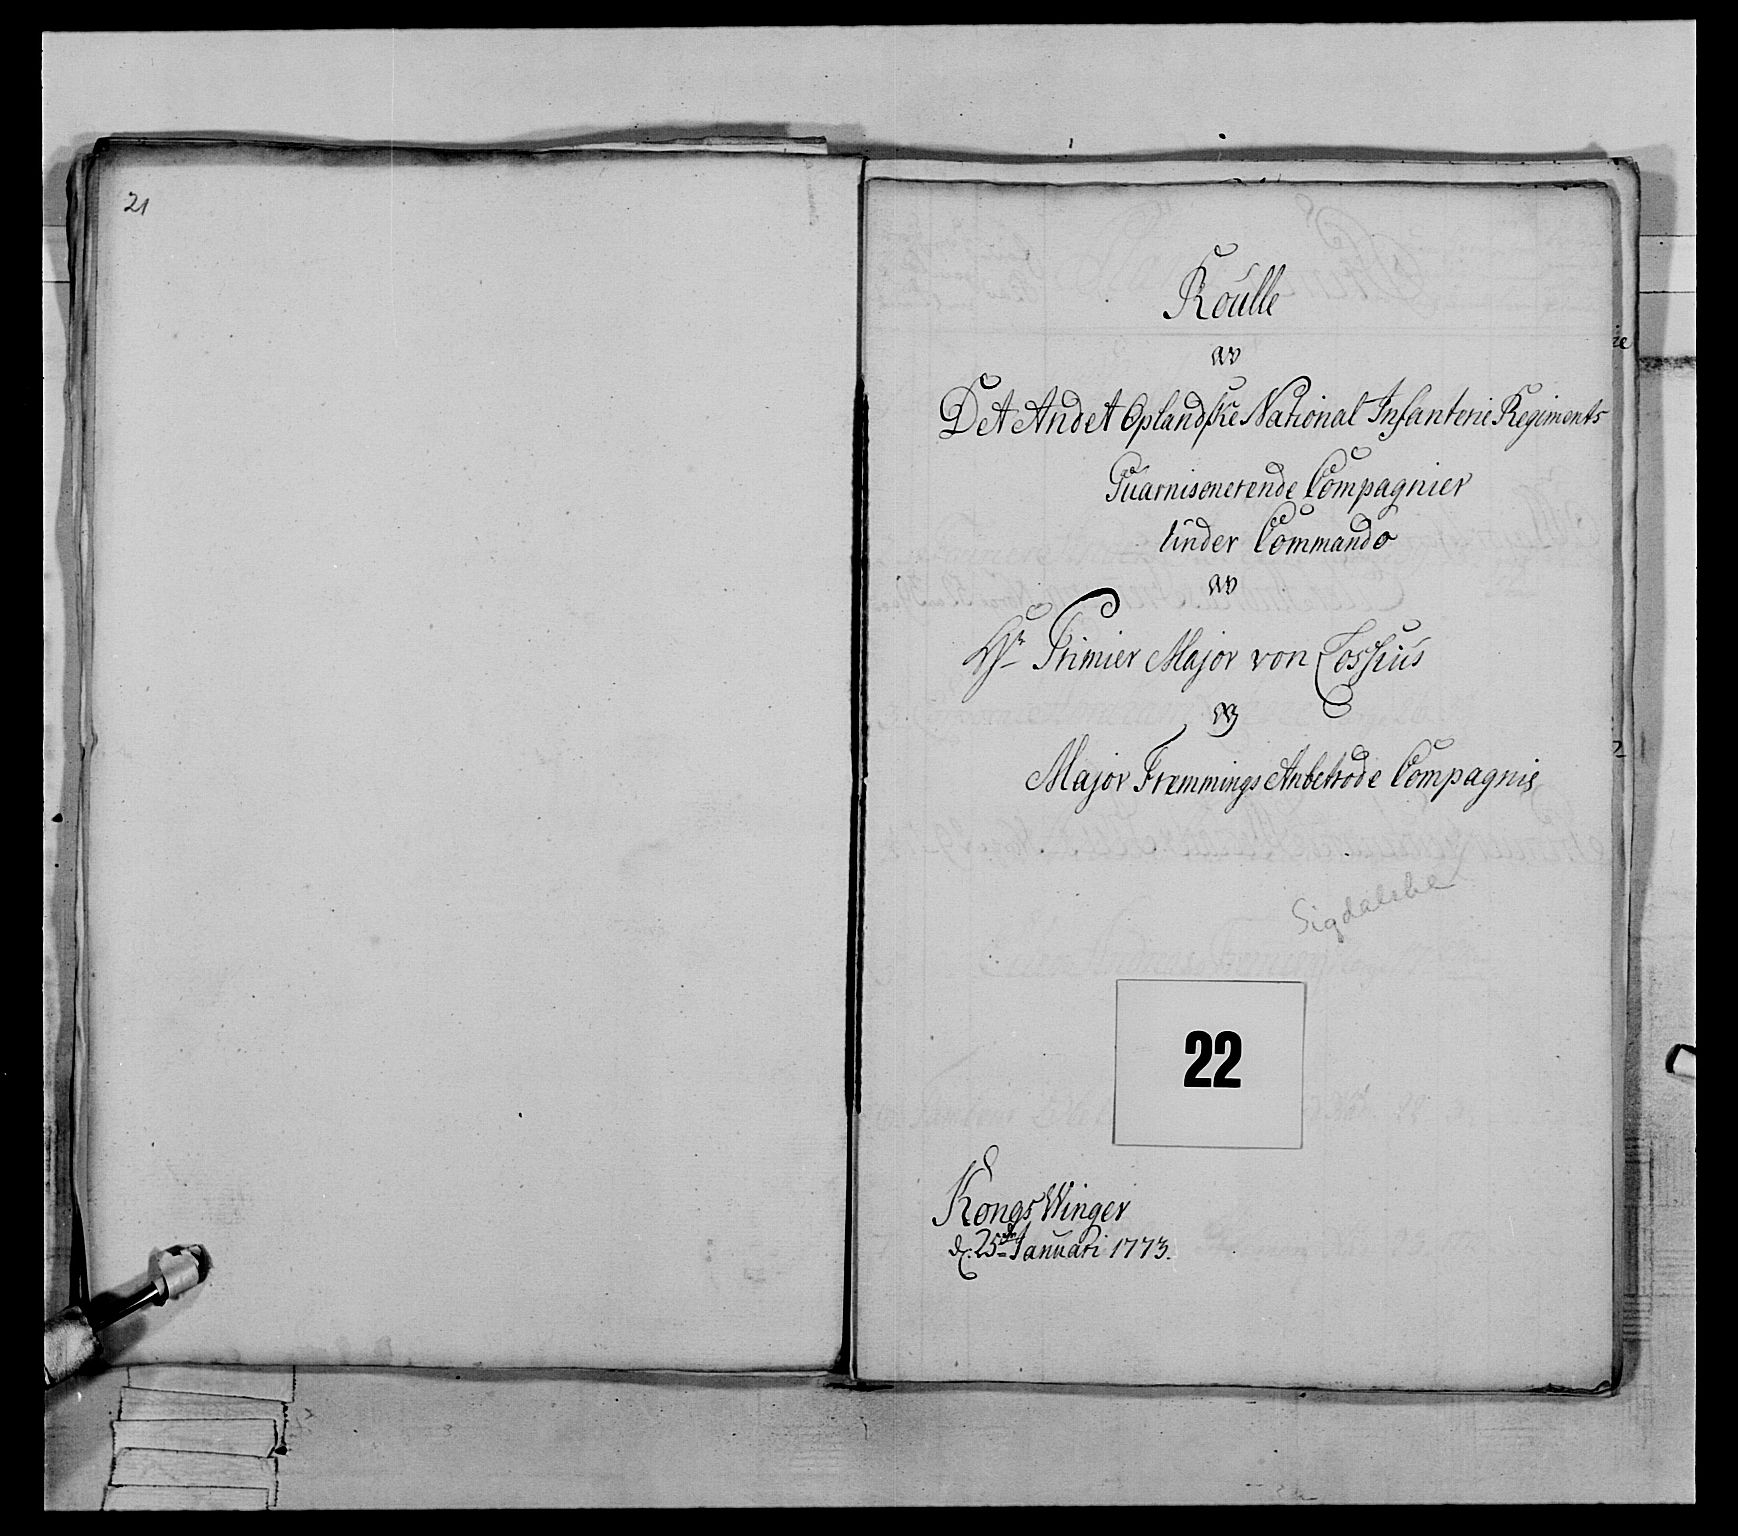 21
Roulle
av
Det Andet Oplandske National Infanterie Regiments
Guarnisonerende Compagnier
Under Commando
av
Hr Primier Major von Cossius
og
Major Fremmings Anbetrode Compagnie
Sigdalske
22
Kongs Winger
d. 25de Januari 1773.